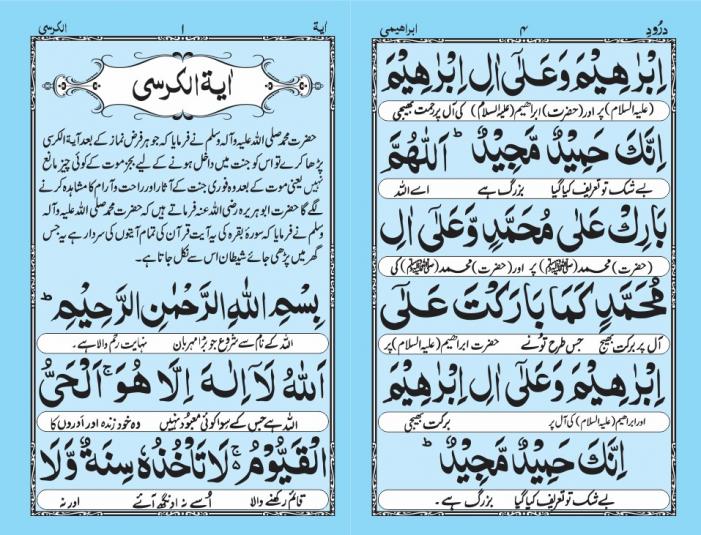 درُودِ
۴
ابراھیمی
اِبْرٰهِيْمَ وَعَلٰٓى اٰلِ اِبْرٰهِيْمَ
(علیہ السلام) پر اور (حضرت) ابراھیم (علیہ السلام) کی آل پر رحمت بھیجی
اِنَّكَ حَمِيْدٌ مَّجِيْدٌ ؕ اَللّٰهُمَّ
بے شک تو تعریف کیا گیا بزرگ ہے اے اللہ
بَارِكْ عَلٰى مُحَمَّدٍ وَّعَلٰٓى اٰلِ
(حضرت) محمد (ﷺ) پر اور (حضرت) محمد (ﷺ) کی
مُحَمَّدٍ كَمَا بَارَكْتَ عَلٰٓى
آل پر برکت بھیج جس طرح تُو نے حضرت ابراھیم (علیہ السلام) پر
اِبْرٰهِيْمَ وَعَلٰٓى اٰلِ اِبْرٰهِيْمَ
اور ابراھیم (علیہ السلام) کی آل پر برکت بھیجی
اِنَّكَ حَمِيْدٌ مَّجِيْدٌ ؕ
بے شک تو تعریف کیا گیا بزرگ ہے۔
اٰیة
۱
الکرسی
اٰیة الکرسی
حضرت محمد صلی اللہ علیہ وآلہ وسلم نے فرمایا کہ جو ہر فرض نماز کے بعد آیة الکرسی
پڑھا کرے تو اس کو جنت میں داخل ہونے کے لیے بجز موت کے کوئی چیز مانع
نہیں یعنی موت کے بعد وہ فوری جنت کے آثار اور راحت و آرام کا مشاہدہ کرنے
لگے گا حضرت ابو ہریرہ رضی اللہ عنہ فرماتے ہیں کہ حضرت محمد صلی اللہ علیہ وآلہ
وسلم نے فرمایا کہ سورۂ بقرہ کی یہ آیت قرآن کی تمام آیتوں کی سردار ہے یہ جس
گھر میں پڑھی جائے شیطان اس سے نکل جاتا ہے۔
بِسْمِ اللّٰهِ الرَّحْمٰنِ الرَّحِيْمِ ؕ
اللہ کے نام سے شروع جو بڑا مہربان نہایت رحم والا ہے۔
اَللّٰهُ لَآ اِلٰهَ اِلَّا هُوَ ۚ اَلْحَىُّ
اللہ ہے جس کے سوا کوئی معبُود نہیں وہ خود زندہ اور اَوروں کا
الْقَيُّوْمُ ۚ لَا تَاْخُذُهٗ سِنَةٌ وَّلَا
قائم رکھنے والا اُسے نہ اونگھ آئے اور نہ